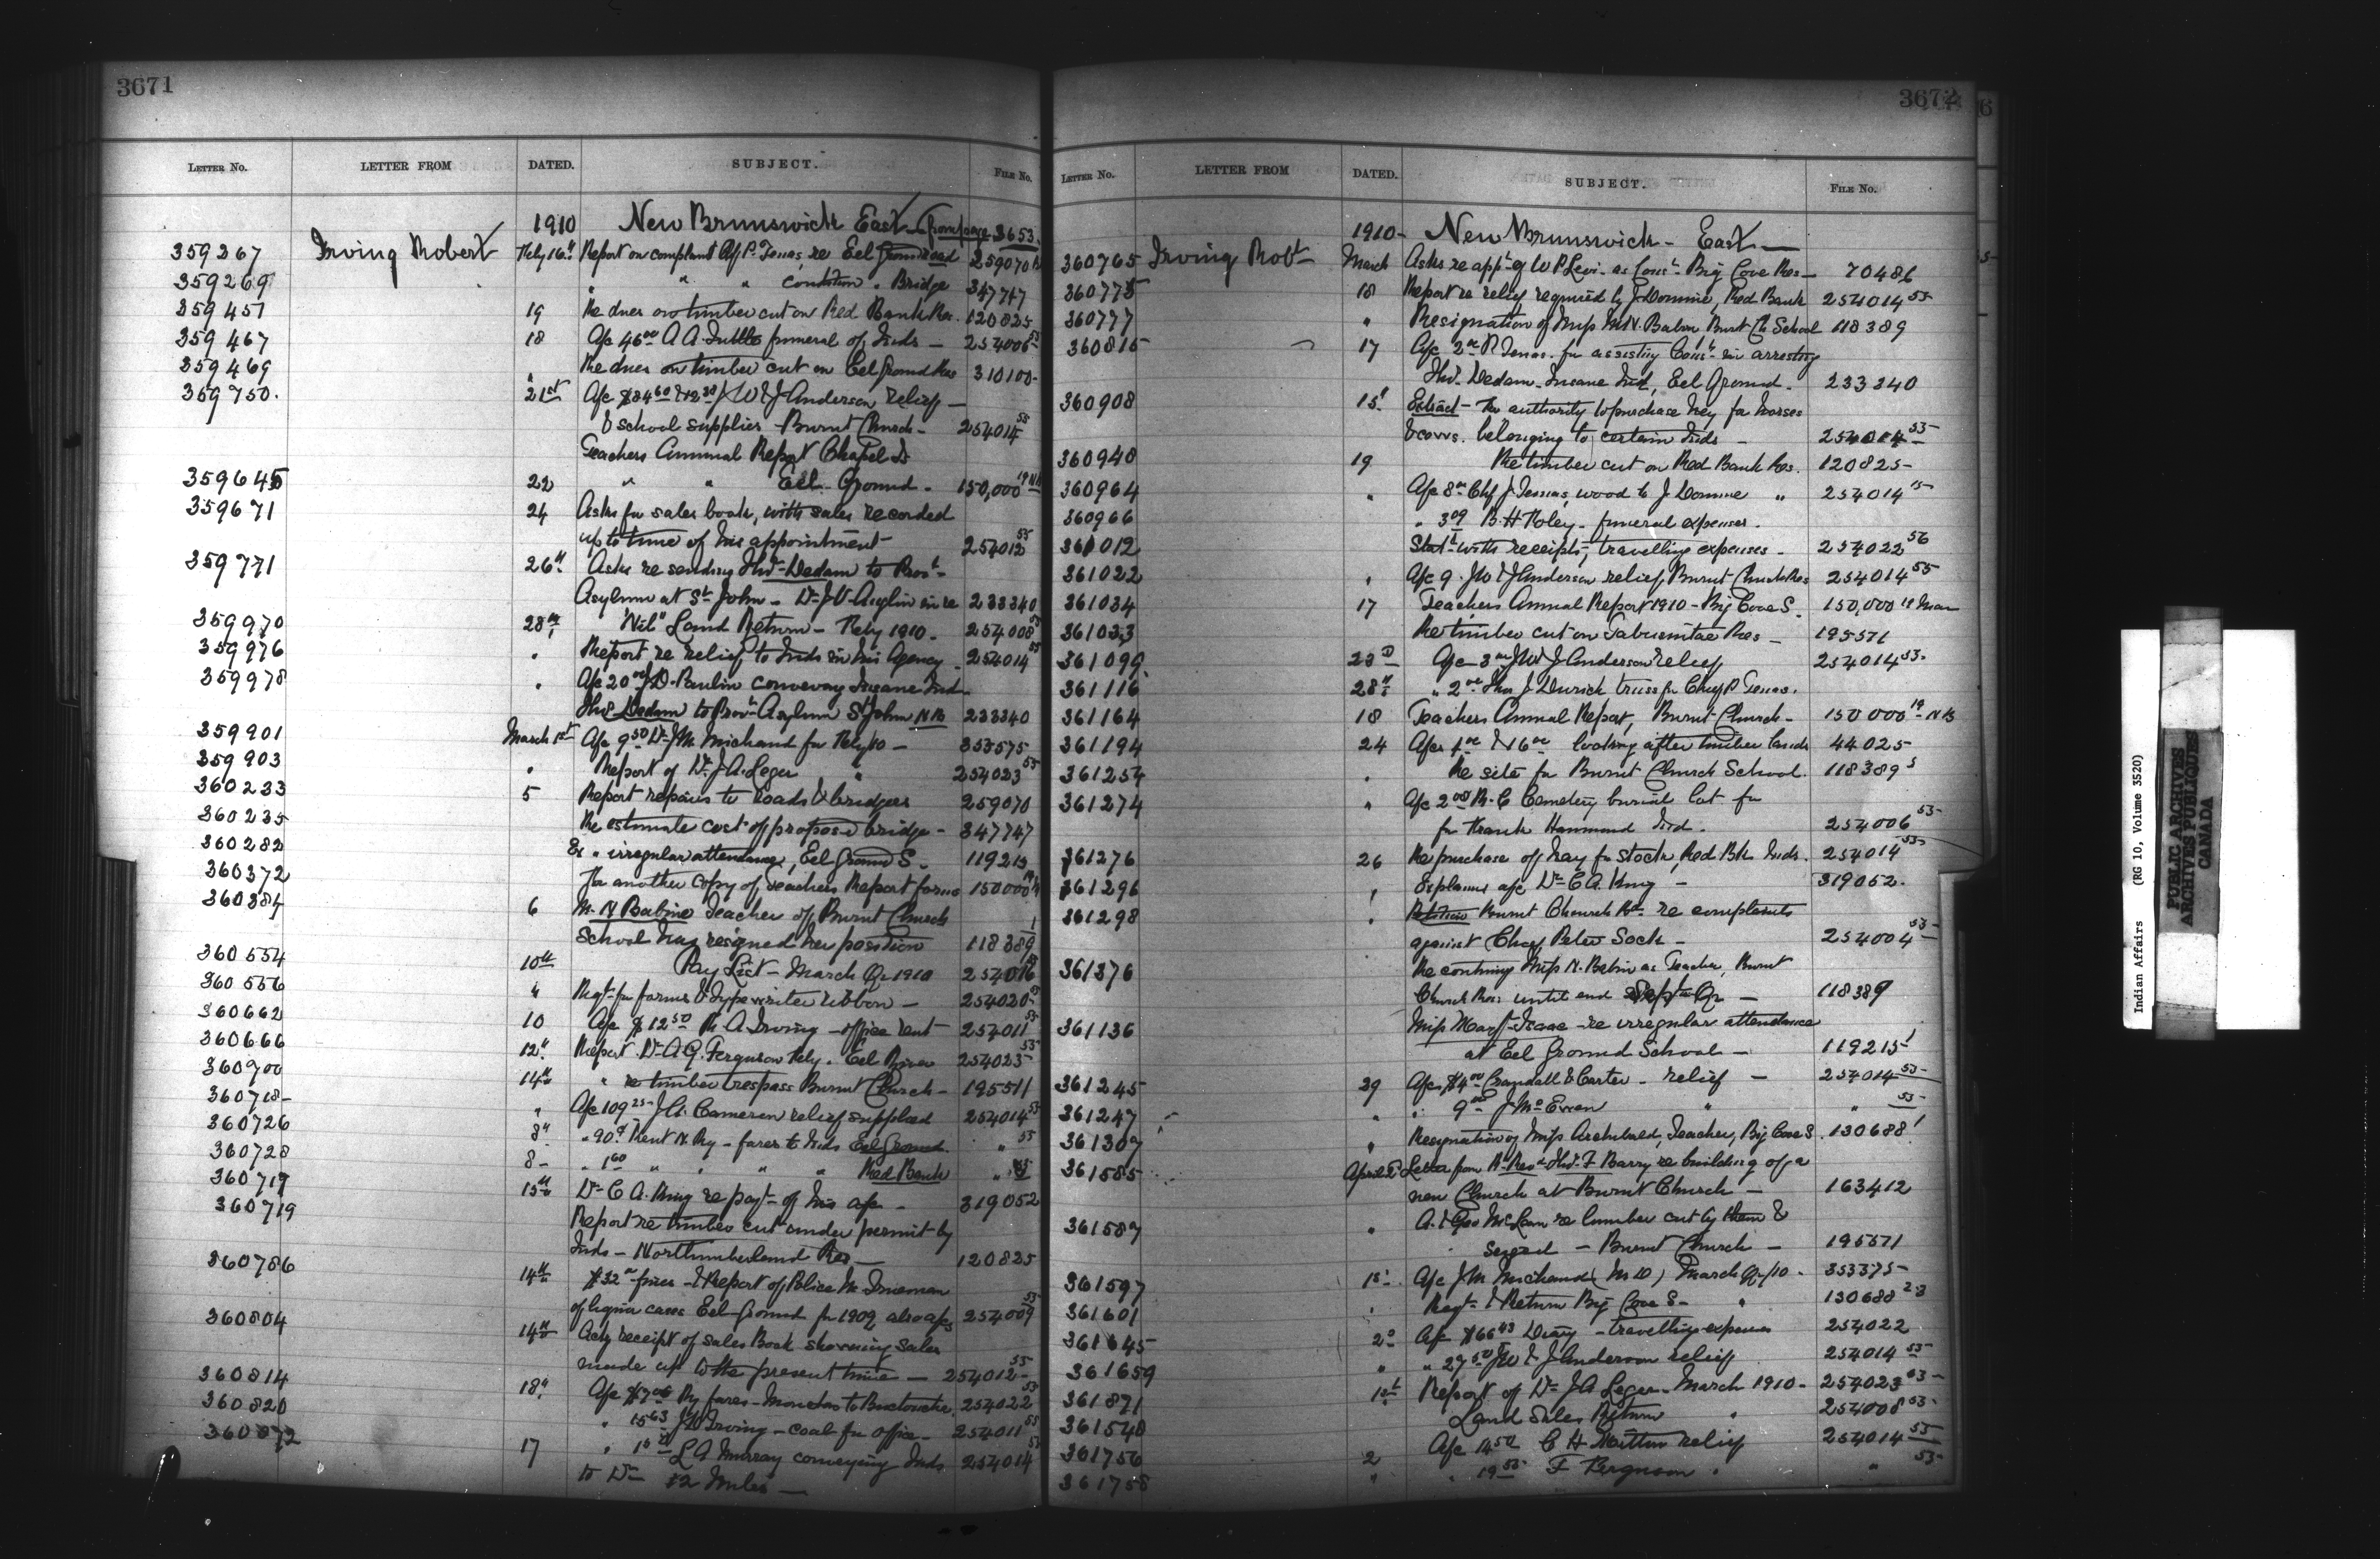 3671
LETTER NO. LETTER FROM DATED. SUBJECT. FILE No.
1910 New Brunswick East (from page 3653.
359267 Irving Robert Feby 16th Report on complaint Chf P. Jenas re Eel Ground road 259070
359269 " " " condition " Bridge 347747
359451 19 Re dues on timber cut on Red Bank Res. 120825
359467 18 A/c 46.00 A A Tuttle funeral of Inds — 254006 55
359469 " Re dues on timber cut on Eel Ground Res 310100-
359750. 21st A/c $84.60 & 12.38 J W & J Anderson relief —
& school supplies - Burnt Church - 254014 55
Teachers Annual Report Chapel Is
359645 22 " " Eel Ground - 150,000 19 NB
359671 24 Asks for sales book, with sales recorded
up to time of his appointment - 254012 55
359771 26th Asks re sending Thos Dedam to Prov'l
Asylum at St. John - Dr J V Anglin in re 233340
359970 28th "Nil" Land Return - Feby 1910. 254008 55
359976 " Report re relief to Inds in his Agency - 254014 55
359978 " A/c 20.00 J D. Paulin conveying Insane Ind
Thos Dedam to Prov'l Asylum St John NB 233340
359901 March 1st A/c 9.50 Dr J M Michaud for Feby/10 - 353575
359903 " Report of Dr. J A. Leger " 254023 55
360233 5 Report repairs to roads & bridges 259070
360235 Re estimate cost of proposed bridge - 347747
360282 Ex " irregular attendance, Eel Ground S. 119215
360372 For another copy of Teachers Report forms 150000
360384 6 M. N Babine Teacher of Burnt Church
School has resigned her position 118389 1
360554 10th Pay List - March Qr 1910 254016
360556 " Reqt for forms & typewriter ribbon - 254020
360662 10 A/c $12.50 R A. Irving - office rent - 254011 55
360666 12th Report Dr A G. Ferguson Feby. Eel River 254023 55
360700 14th " re timber trespass Burnt Church - 195511
360718- " A/c 109.25 J A. Cameron relief supplied 254014 55
360726 8th " 90c Kent N. Ry - fares to Inds Eel Ground " 55
360728 8 - " 1.60 " " " " Red Bank " 55
360717 15th Dr C A. King re payt of his a/c - 319052
360719 Report re timber cut under permit by
Inds - Northumberland Res — 120825
360786 14th $32.00 fines - & Report of Police
of liquor cases Eel Ground for 1909, also a/cs 254009 55
360804 14th Ackg receipt of Sales Book showing sales
made up to the present time — 254012 55
360814 18th A/c Ry fares - Moncton to Buctouche 254022 55
360820 " 15.63 J W Irving - coal for office - 254011 55
360872 17 " L A Murray conveying Inds 254014 55
to Dr 52 Miles —
3672
LETTER NO. LETTER FROM DATED. SUBJECT. FILE No.
1910- New Brunswick - East —
360765 Irving Robt March Asks re appt of W P Levi - as Const Big Cove Res — 70486
360775 18 Report re relief required by J Domine, Red Bank 254014 55
360777 " Resignation of Miss M N. Babin Burnt Ch School 118389
360815 17 A/c 2.00 P Jenas for assisting Const in arresting
Thos Dedam - Insane Ind, Eel Ground. 233340
360908 15th Extract - Re authority to purchase hey for horses
& cows belonging to certain Inds - 254014 55
360940 19 Re timber cut on Red Bank Res. 120825-
360964 " A/c 8.00 Chf J Jenas, wood to J Domine " 254014 55
360966 " 3.09 B. H Foley - funeral expenses.
361012 Stat with receipts, travelling expenses - 254022 56
361022 " A/c 9. J W & J Anderson relief, Burnt Church Res 254014 55
361034 17 Teachers Annual Report 1910 - Big Cove S. 150,000 19 Mar
361033 Re timber cut on Tabusintac Res - 195571
361099 23d A/c J W & J Anderson relief 254014 55.
361116 28th " 2.00 Thos J Durick truss for Chief P Jenas.
361164 18 Teachers Annual Report, Burnt Church - 150000 19 NB
361194 24 A/cs 4.00 & 16.00 looking after timber lands 44025
361254 " Re site for Burnt Church School. 118389 3
361274 " A/c 2.00 R. C Cemetery burial lot for
for Frank Hammond Ind. 254006 55
361276 26 Re purchase of hay for stock, Red Bk Inds. 254014 55
361296 " Explains a/c Dr C A. King - 319052.
361298 " Petition Burnt Church Bd. re complaints
against Chief Peter Sock - 254004 55
361376 Re continuing Miss N. Babin as Teacher, Burnt
Church Res: until end Qr — 118389
361136 Miss Mary Isaac - re irregular attendance
at Eel Ground School — 119215 1
361245 29 A/c $4.00 Crandall & Carter - relief — 254014 55
361247 " " 9.00 J McEwen " " 55
361307 " Resignation of Miss Archibald, Teacher, Big Cove S. 130688 1
361585 April 2 Letter from Rt Revd Thos. F Barry re building of a
new Church at Burnt Church — 163412
361587 " A. & Geo McLean re lumber cut by them &
seized - Burnt Church - 195571
361597 1st A/c J M Michaud (M D) March Qr/10 - 353375
361601 " Reqt & Return Big Cove S - " 130688 23
361645 2d A/c $66.43 Diary - travelling expenses 254022
361659 " " 27.50 J W & J Anderson relief 254014 55
361871 1st Report of Dr J A Leger - March 1910 - 254023 55
361548 Land Sales Return " 254008 55
361756 2 A/c 14.50 C H relief 254014 55
361758 " " 19.55 F Ferguson " " 55
Indian Affairs (RG 10, Volume 3520)
PUBLIC ARCHIVES
ARCHIVES PUBLIQUES
CANADA